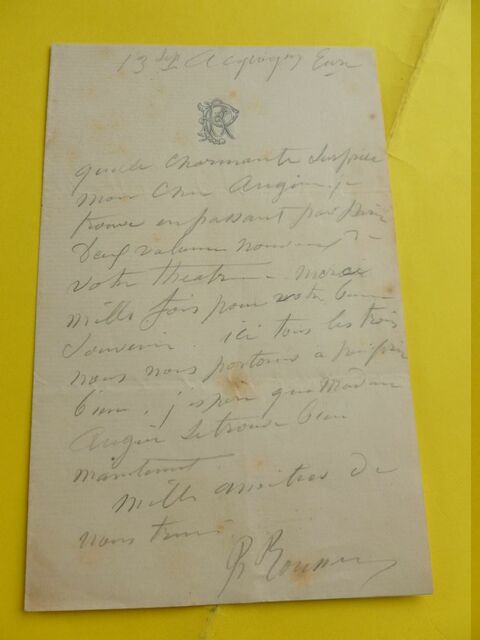 13 Sep Acquigny Eure
PR
quelle charmante surprise
mon cher Augier. je
trouve en passant par Paris
Deux volumes nouveaux de
votre theatre. merci
mille fois pour votre bon
souvenir. ici tous les trois
nous nous portons a peu près
bien, j'espère que Madame
Augier se trouve bien
maintenant.
mille amitiés de
nous trois
Ph Rousseau